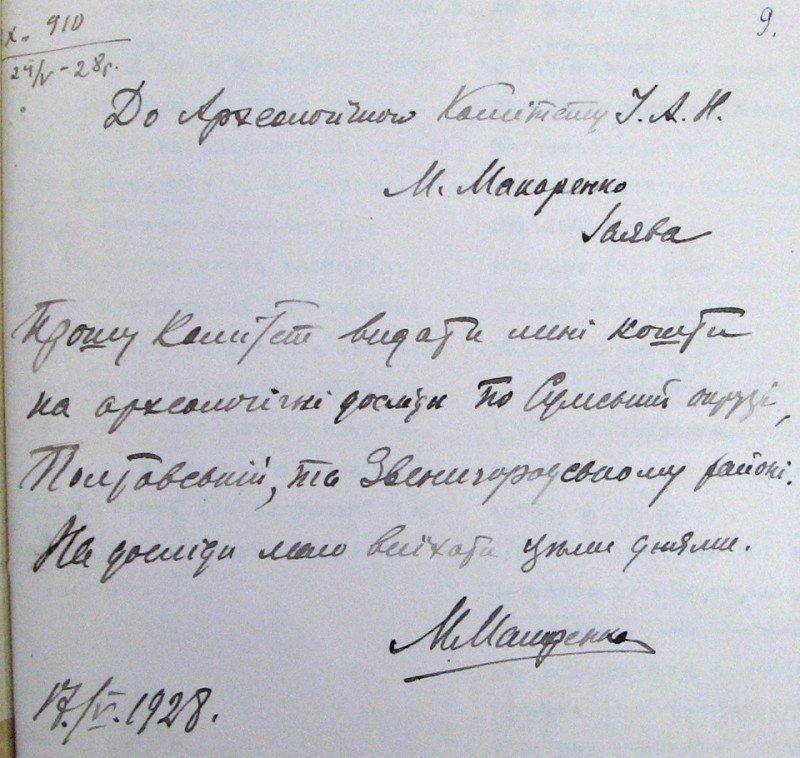 9.
х. 910
24/V - 28 г.
До Археологічного Комітету У. А. Н.
М. Макаренко
Заява
Прошу Комітет видати мині кошти
на археологічні досліди по Сумській окрузі,
Полтавській, та Звенигородському районі.
На досліди маю виїхати цими днями.
М Макаренко
17/V. 1928.